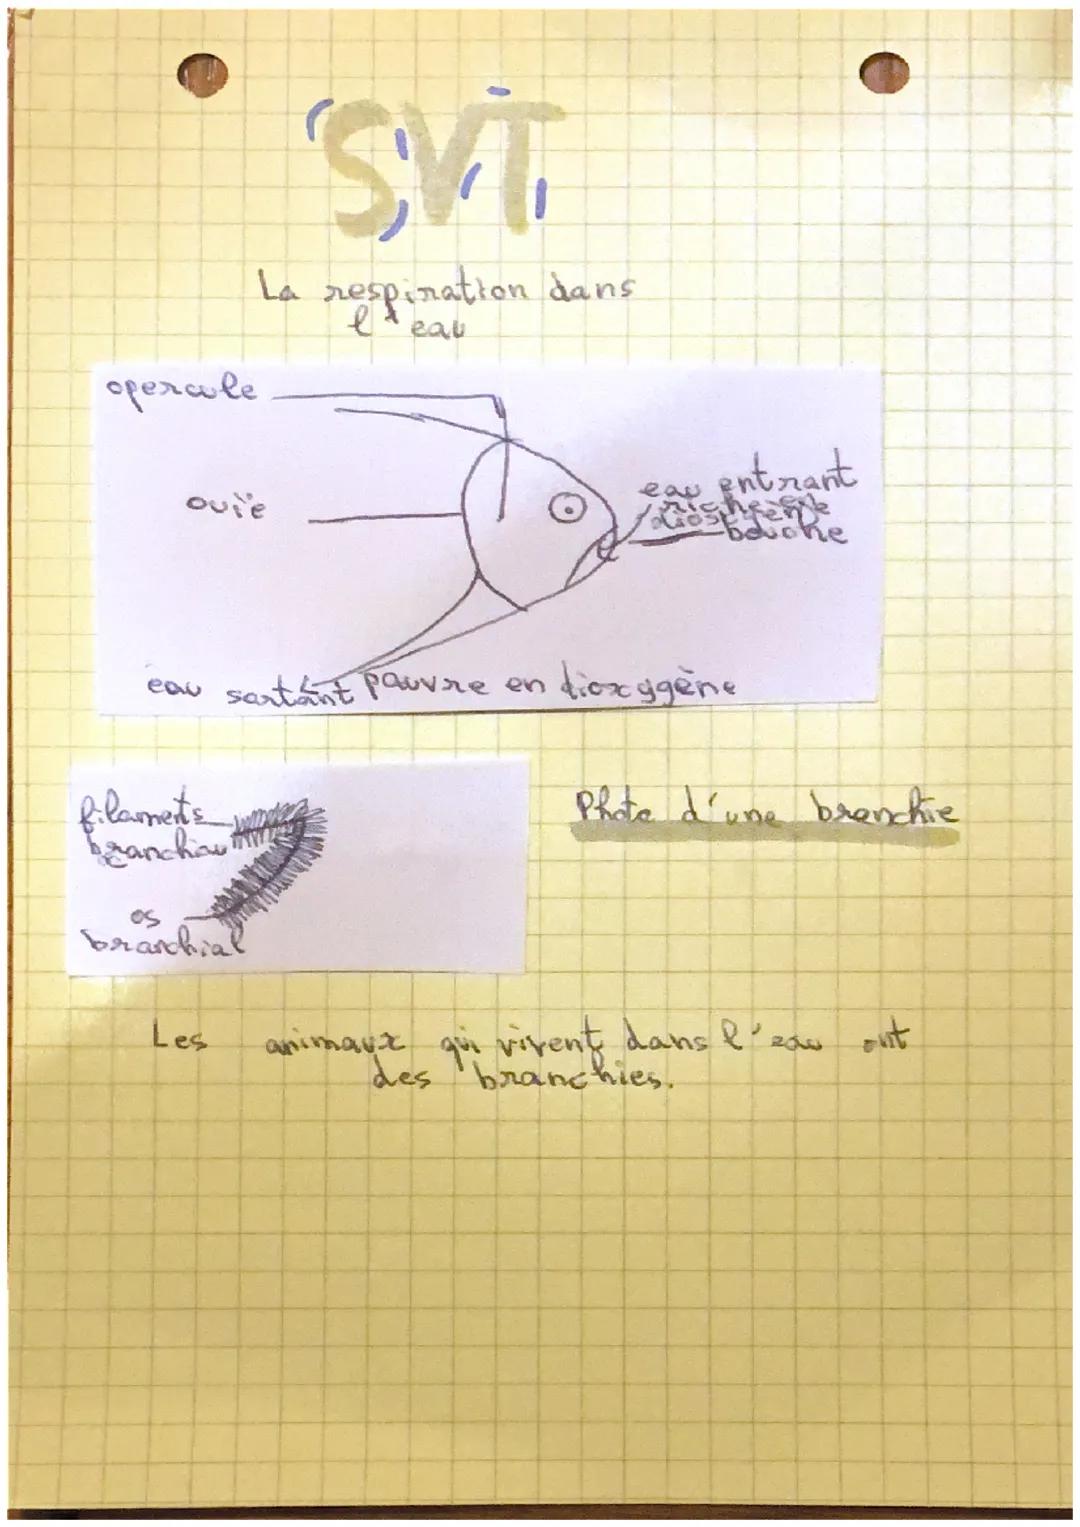 SVT
La respiration dans
l'eau
opercule
ouïe
eau entrant
riche en
bouche
eau sortant pauvre en dioxygène
filaments
branchiau
os
branchial
Photo d'une branchie
Les animaux qui vivent dans l'eau ont
des branchies.